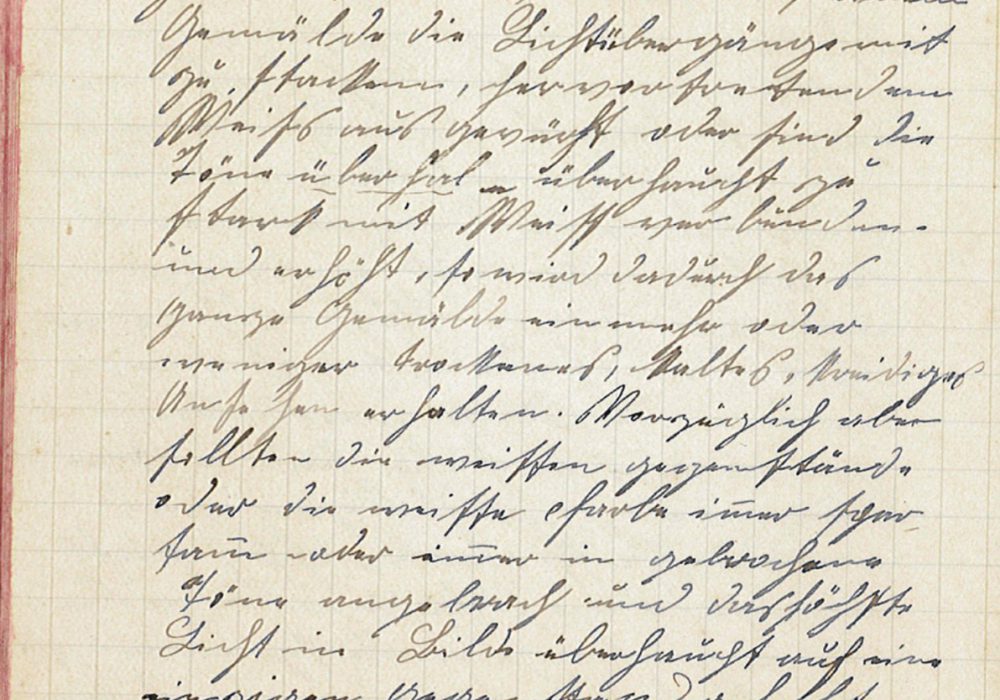 Gemälde die Lichtübergänge mit
zu starkem, hervortretendem
Weiss ausgedrückt oder sind die
Töne überhaupt zu
stark mit Weiss verbunden
und erhöht, so wird dadurch das
ganze Gemälde ein mehr oder
weniger trockenes, kaltes, kreidiges
Ansehen erhalten. Vorzüglich aber
sollten die weissen gegenstände
oder die weisse Farbe im̅er spar-
sam̅ oder im̅er in gebrochene
Töne angebrach und das höchste
Licht in Bilde überhaucht auf eine